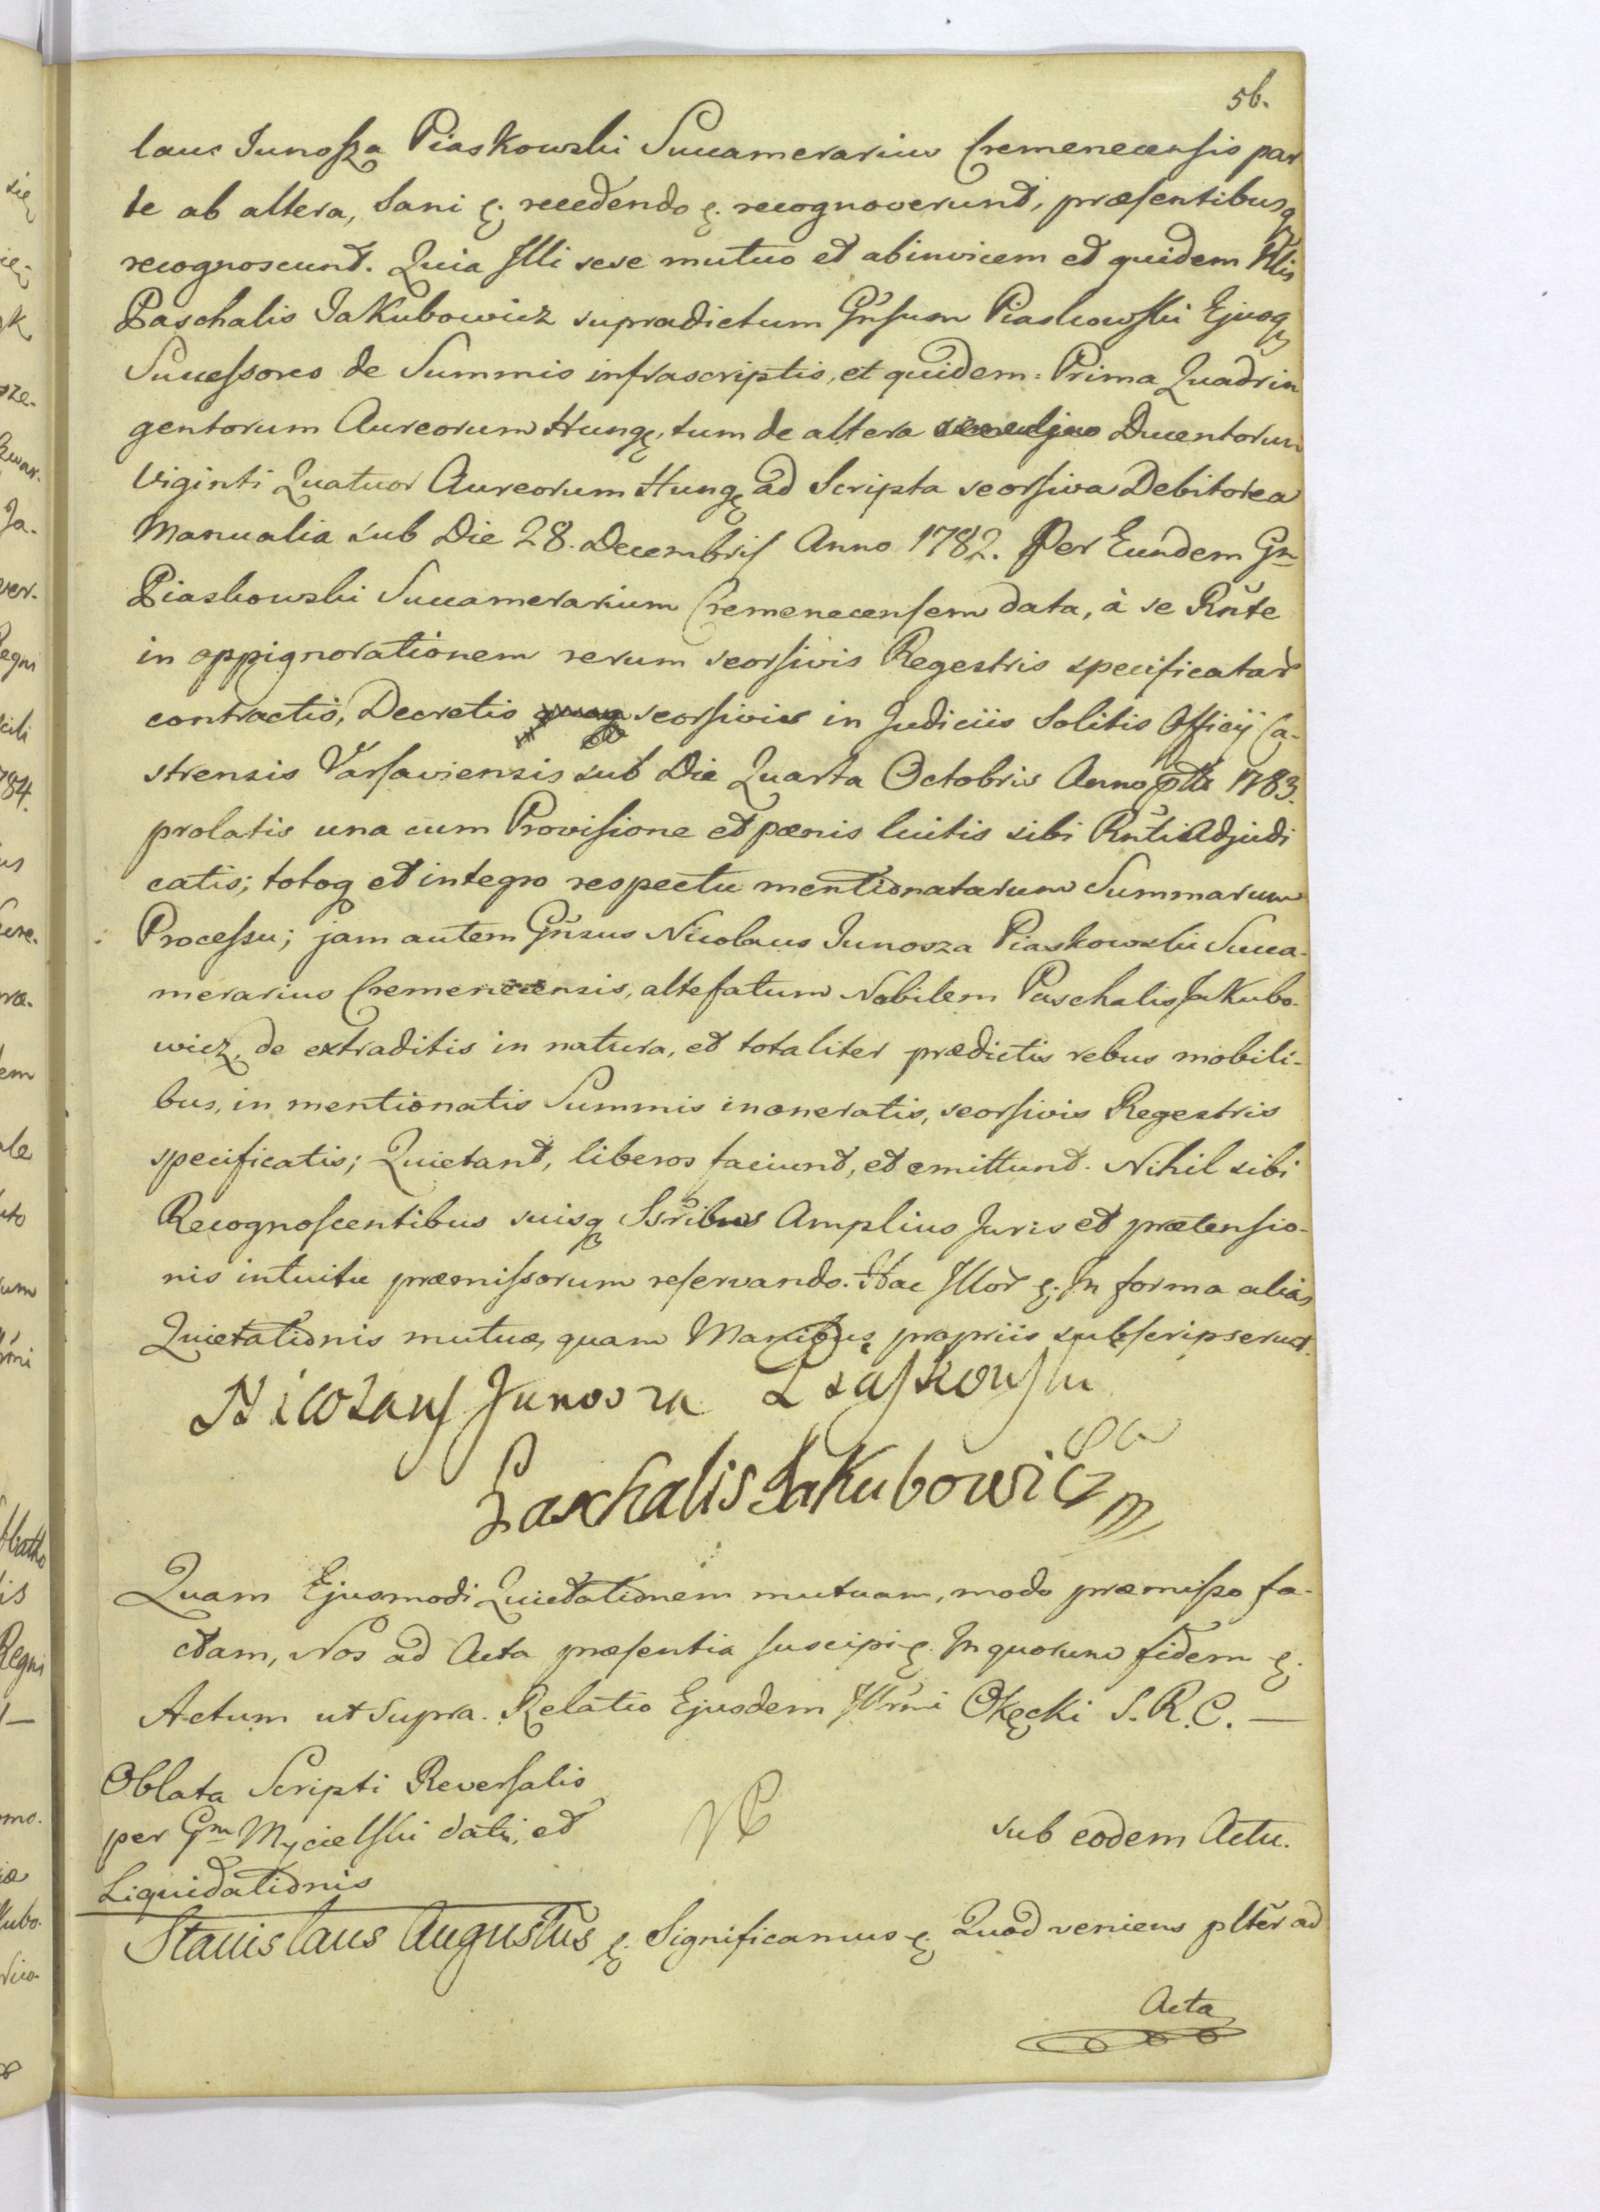 56.
laus Junosza Piaskowski Succamerarius Cremenecensis par
te ab altera, Sani &. recedendo &. recognoverunt, præsentibusq
recognoscunt. Quia Illi sese mutuo et abinvicem et quidem Nlis
Paschalis Jakubowicz supradictum Gnsum Piaskowski Ejusq
Successores de Summis infrascriptis, et quidem: Prima Quadrin
gentorum Aureorum Hung, tum de altera Ducentorum
Viginti Quatuor Aureorum Hung ad Scripta seorsiva Debitorea
Manualia sub Die 28. Decembris Anno 1782. Per Eundem Gn
Piaskowski Succamerarium Cremenecensem data, à se Rnte
in oppignorationem rerum seorsivis Regestris specificatar
contractis, Decretis seorsivis in Judiciis Solitis Officij Ca-
strensis Varsaviensis sub Die Quarta Octobris Anno 1783.
prolatis una cum Provisione et pænis luitis sibi Rnti Adjudi
catis; totoq et integro respectu mentionatarum Summarum
Processu; jam autem Gnsus Nicolaus Junosza Piaskowski Succa-
merarius Cremenecensis, altefatum Nobilem Paschalis Jakubo-
wicz, de extraditis in natura, et totaliter prædictis rebus mobili-
bus, in mentionatis Summis inoneratis, seorsivis Regestris
specificatis; Quietant, liberos faciunt, et emittunt. Nihil sibi
Recognoscentibus suisq Ssribus Amplius Juris et prætensio-
nis intuitu præmissorum reservando. Hac Illor &. In forma alias
Quietationis mutuæ, quam Manibus propriis subscripserunt.
Nicolaus Junosza Piaskowski
Paschalis Jakubowicz
Quam Ejusmodi Quietationem mutuam, modo præmisso fa-
ctam, Nos ad Acta præsentia suscipi &. In quorum fidem &.
Actum ut supra. Relatio Ejusdem Illrmi Okęcki S. R. C. —
Oblata Scripti Reversalis
per Gm Mycielski dati, et
Liquidationis
sub eodem Actu.
Stanislaus Augustus &. Significamus &. Quod veniens plter ad
Acta